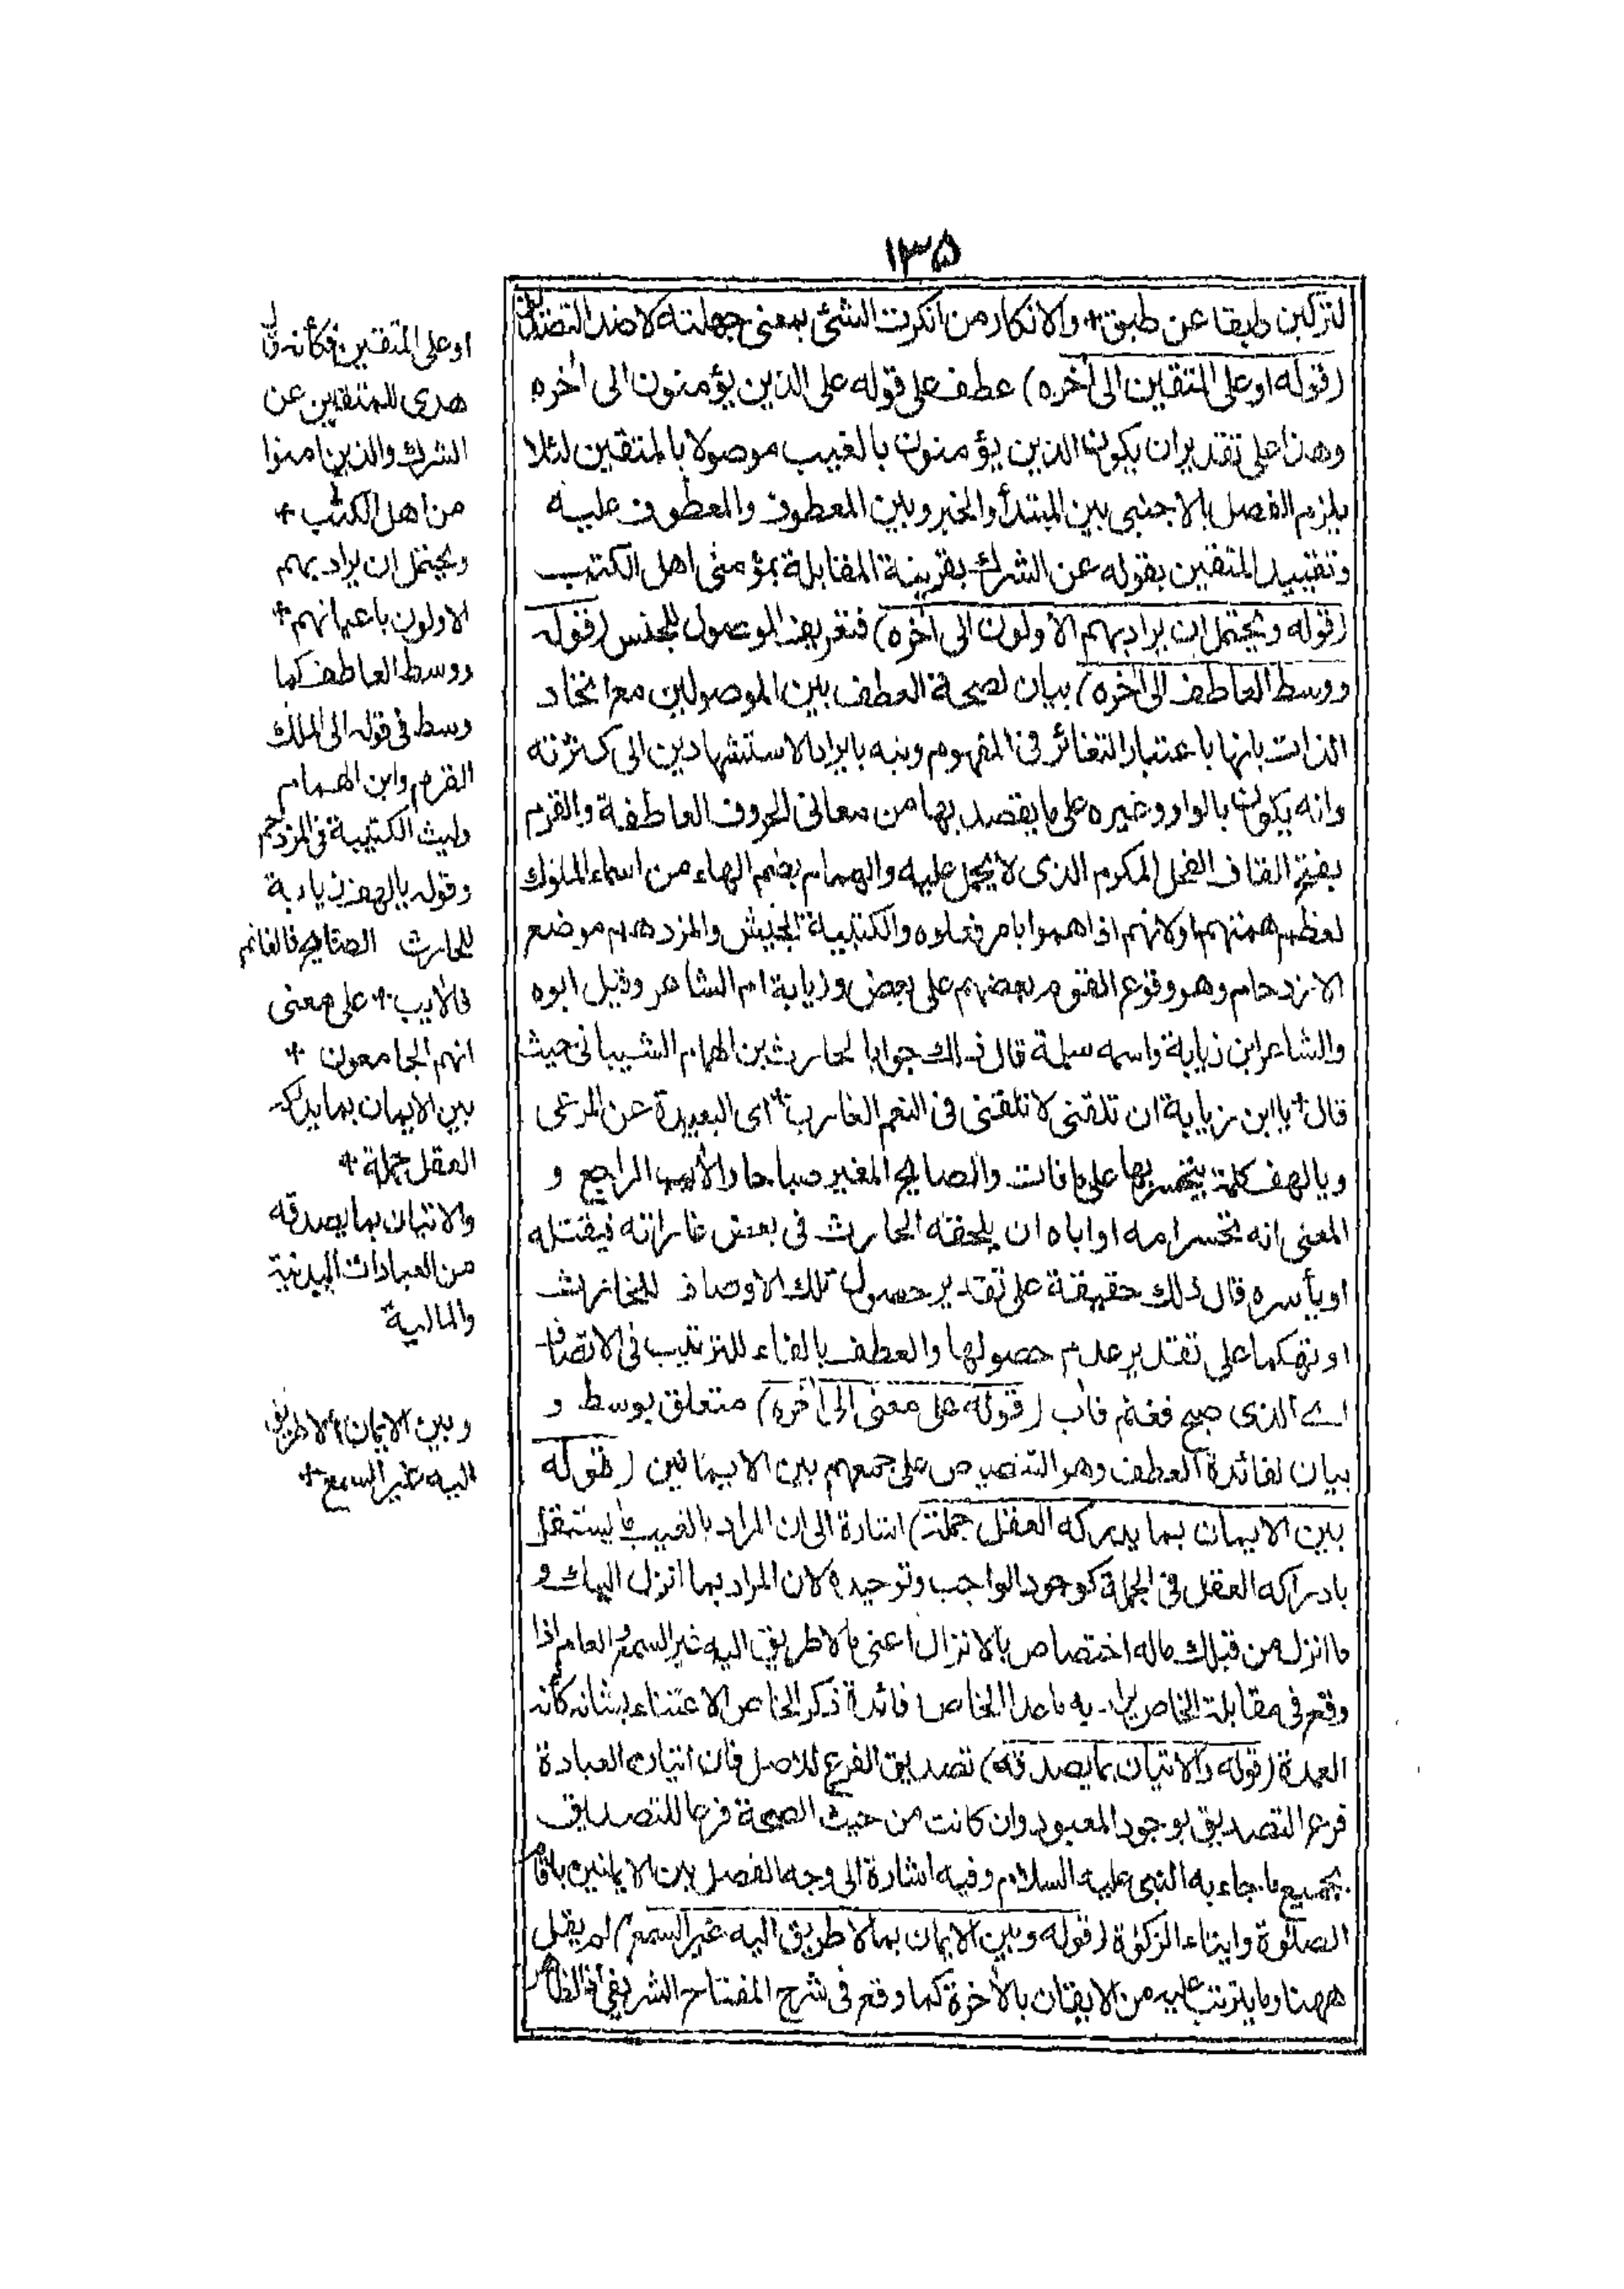 ١٣٥
لتركبن طبقا عن طبق+ والانكار من انكرت الشئ بمعنى جهلته لا ضد التصديق
(قوله اوعلى المتقين الى أخره) عطف على قوله على الذين يؤمنون الى أخره
وهذا على تقدير ان يكون الذين يؤمنون بالغيب موصولا بالمتقين لئلا
يلزم الفصل بالاجنبى بين المبتدأ والخبر وبين المعطوف والمعطوف عليه
وتقييد المتقين بقوله عن الشرك بقرينة المقابلة بمؤمنى اهل الكتب
(قوله ويحتمل ان يراد بهم الاولون الى أخره) فتعريف الموصول للجنس (قوله
ووسط العاطف الى أخره) بيان لصحة العطف بين الموصولين مع اتحاد
الذات بانها باعتبار التغائر فى المفهوم ونبه بايراد الاستشهادين الى كثرته
وانه يكون بالواو وغيره على ما يقصد بها من معانى الحروف العاطفة والقرم
بفتح القاف الفحل المكرم الذى لا يحمل عليه والهمام بضم الهاء من اسماء الملوك
لعظم همتهم اولانهم اذا هموا بامر فعلوه والكتيبة الجيش والمزدحم موضع
الازدحام وهو وقوع القوم بعضهم على بعض وزيابة ام الشاعر وقيل ابوه
والشاعر ابن زيابة واسمه سلمة قال ذلك جوابا لحارث بن الهمام الشيبانى حيث
قال+ يا ابن زيابة ان تلقنى لا تلقنى فى النعم العازب+ اى البعيدة عن المرعى
ويا لهف كلمة يتحسر بها على ما فات والصابح المغير صباحا والأيب الراجع و
المعنى انه تحسر امه او اباه ان يلحقه الحارث فى بعض غاراته فيقتله
او يأسره قال ذلك حقيقة على تقدير حصول تلك الاوصاف للحارث
او تهكما على تقدير عدم حصولها والعطف بالفاء للترتيب فى الاتصاف
اے الذى صبح فغنم فأب (قوله على معنى الى أخره) متعلق بوسط و
بيان لفائدة العطف وهو التنصيص على جمعهم بين الايمانين (قوله
بين الايمان بما يدركه العقل جملة) اشارة الى ان المراد بالغيب ما يستقل
بادراكه العقل فى الجملة كوجود الواجب وتوحيده لان المراد بما انزل اليك و
ما انزل من قبلك ماله اختصاص بالانزال اعنى ما لا طريق اليه غير السمع والعام اذا
وقع فى مقابلة الخاص يراد به ما عدا الخاص فائدة ذكر الخاص الاعتناء بشانه كأنه
العمدة (قوله والاتيان بما يصدقه) تصديق الفرع للاصل فان اتيان العبادة
فرع التصديق بوجود المعبود وان كانت من حيث الصحة فرعا للتصديق
بجميع ما جاء به النبى عليه السلام وفيه اشارة الى وجه الفصل بين الايمانين باقام
الصلوة وايتاء الزكوة (قوله وبين الايمان بما لا طريق اليه غير السمع) لم يقل
ههنا وما يترتب عليه من الايقان بالأخرة كما وقع فى شرح المفتاح الشريفى اذ الظاهر
اوعلى المتقين فكأنه قال
هدى للمتقين عن
الشرك والذين أمنوا
من اهل الكتب +
ويحتمل ان يراد بهم
الاولون باعيانهم +
ووسط العاطف كما
وسط فى قوله الى الملك
القرم وابن الهمام
وليث الكتيبة فى المزدحم
وقوله يا لهف زيابة
للحارث الصابح فالغانم
فالأيب + على معنى
انهم الجامعون +
بين الايمان بما يدركه
العقل جملة +
والاتيان بما يصدقه
من العبادات البدنية
والمالية
وبين الايمان بما لا طريق
اليه غير السمع +